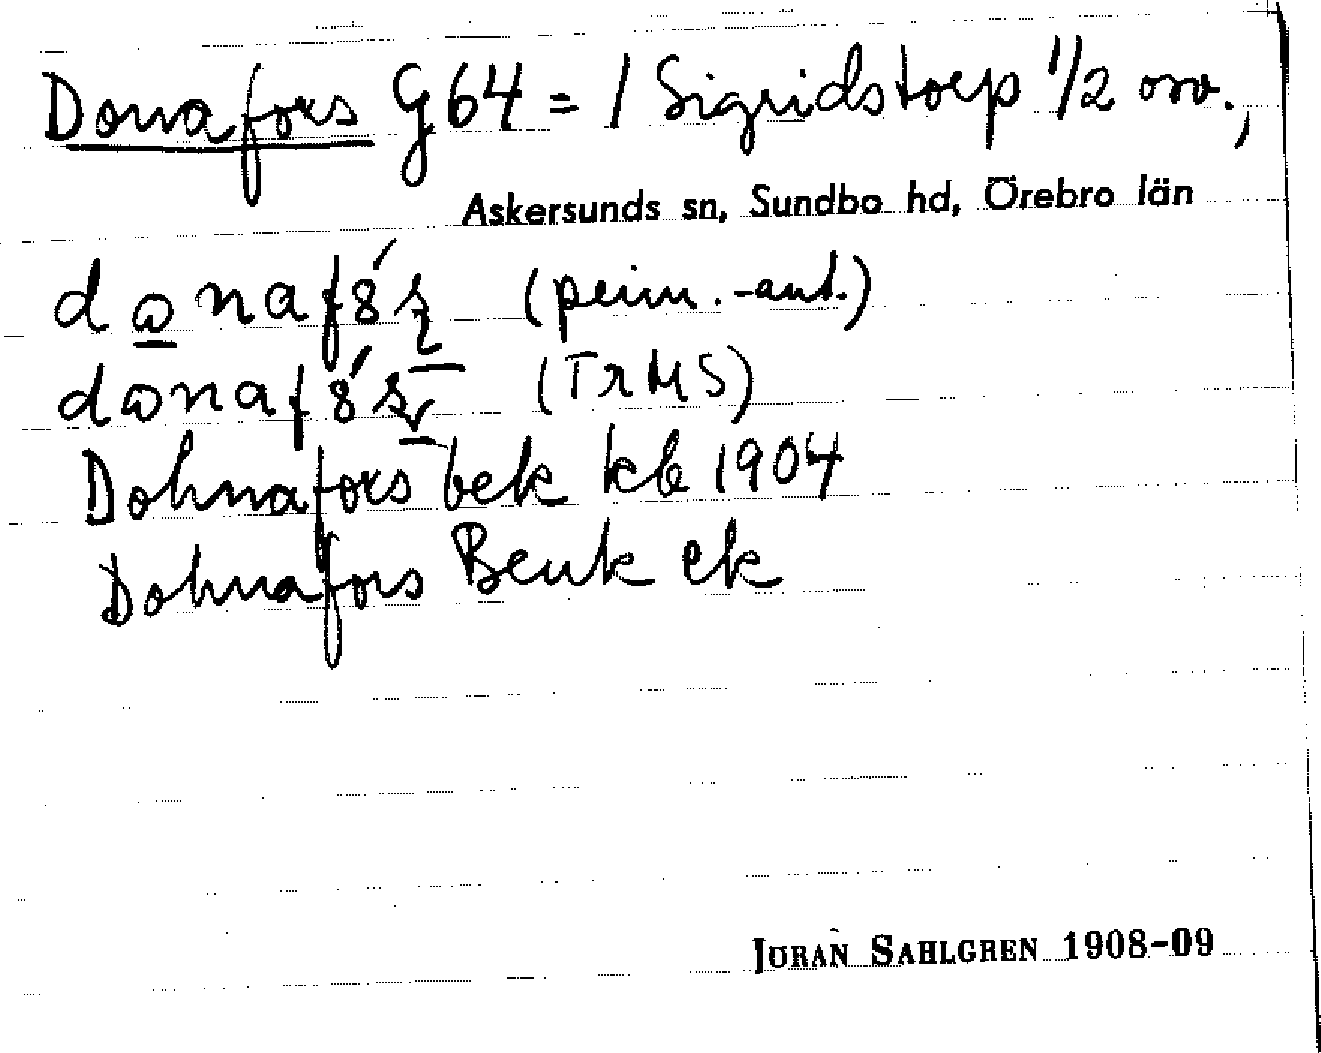 Donafors G64 = 1 Sigridstorp 1/2 orv.,
Askersunds sn, Sundbo hd, Örebro län
(prim.-ant.)
(TrMS)
Dohnafors bek kb 1904
Dohnafors Beuk ek
JÖRAN SAHLGREN 1908-09